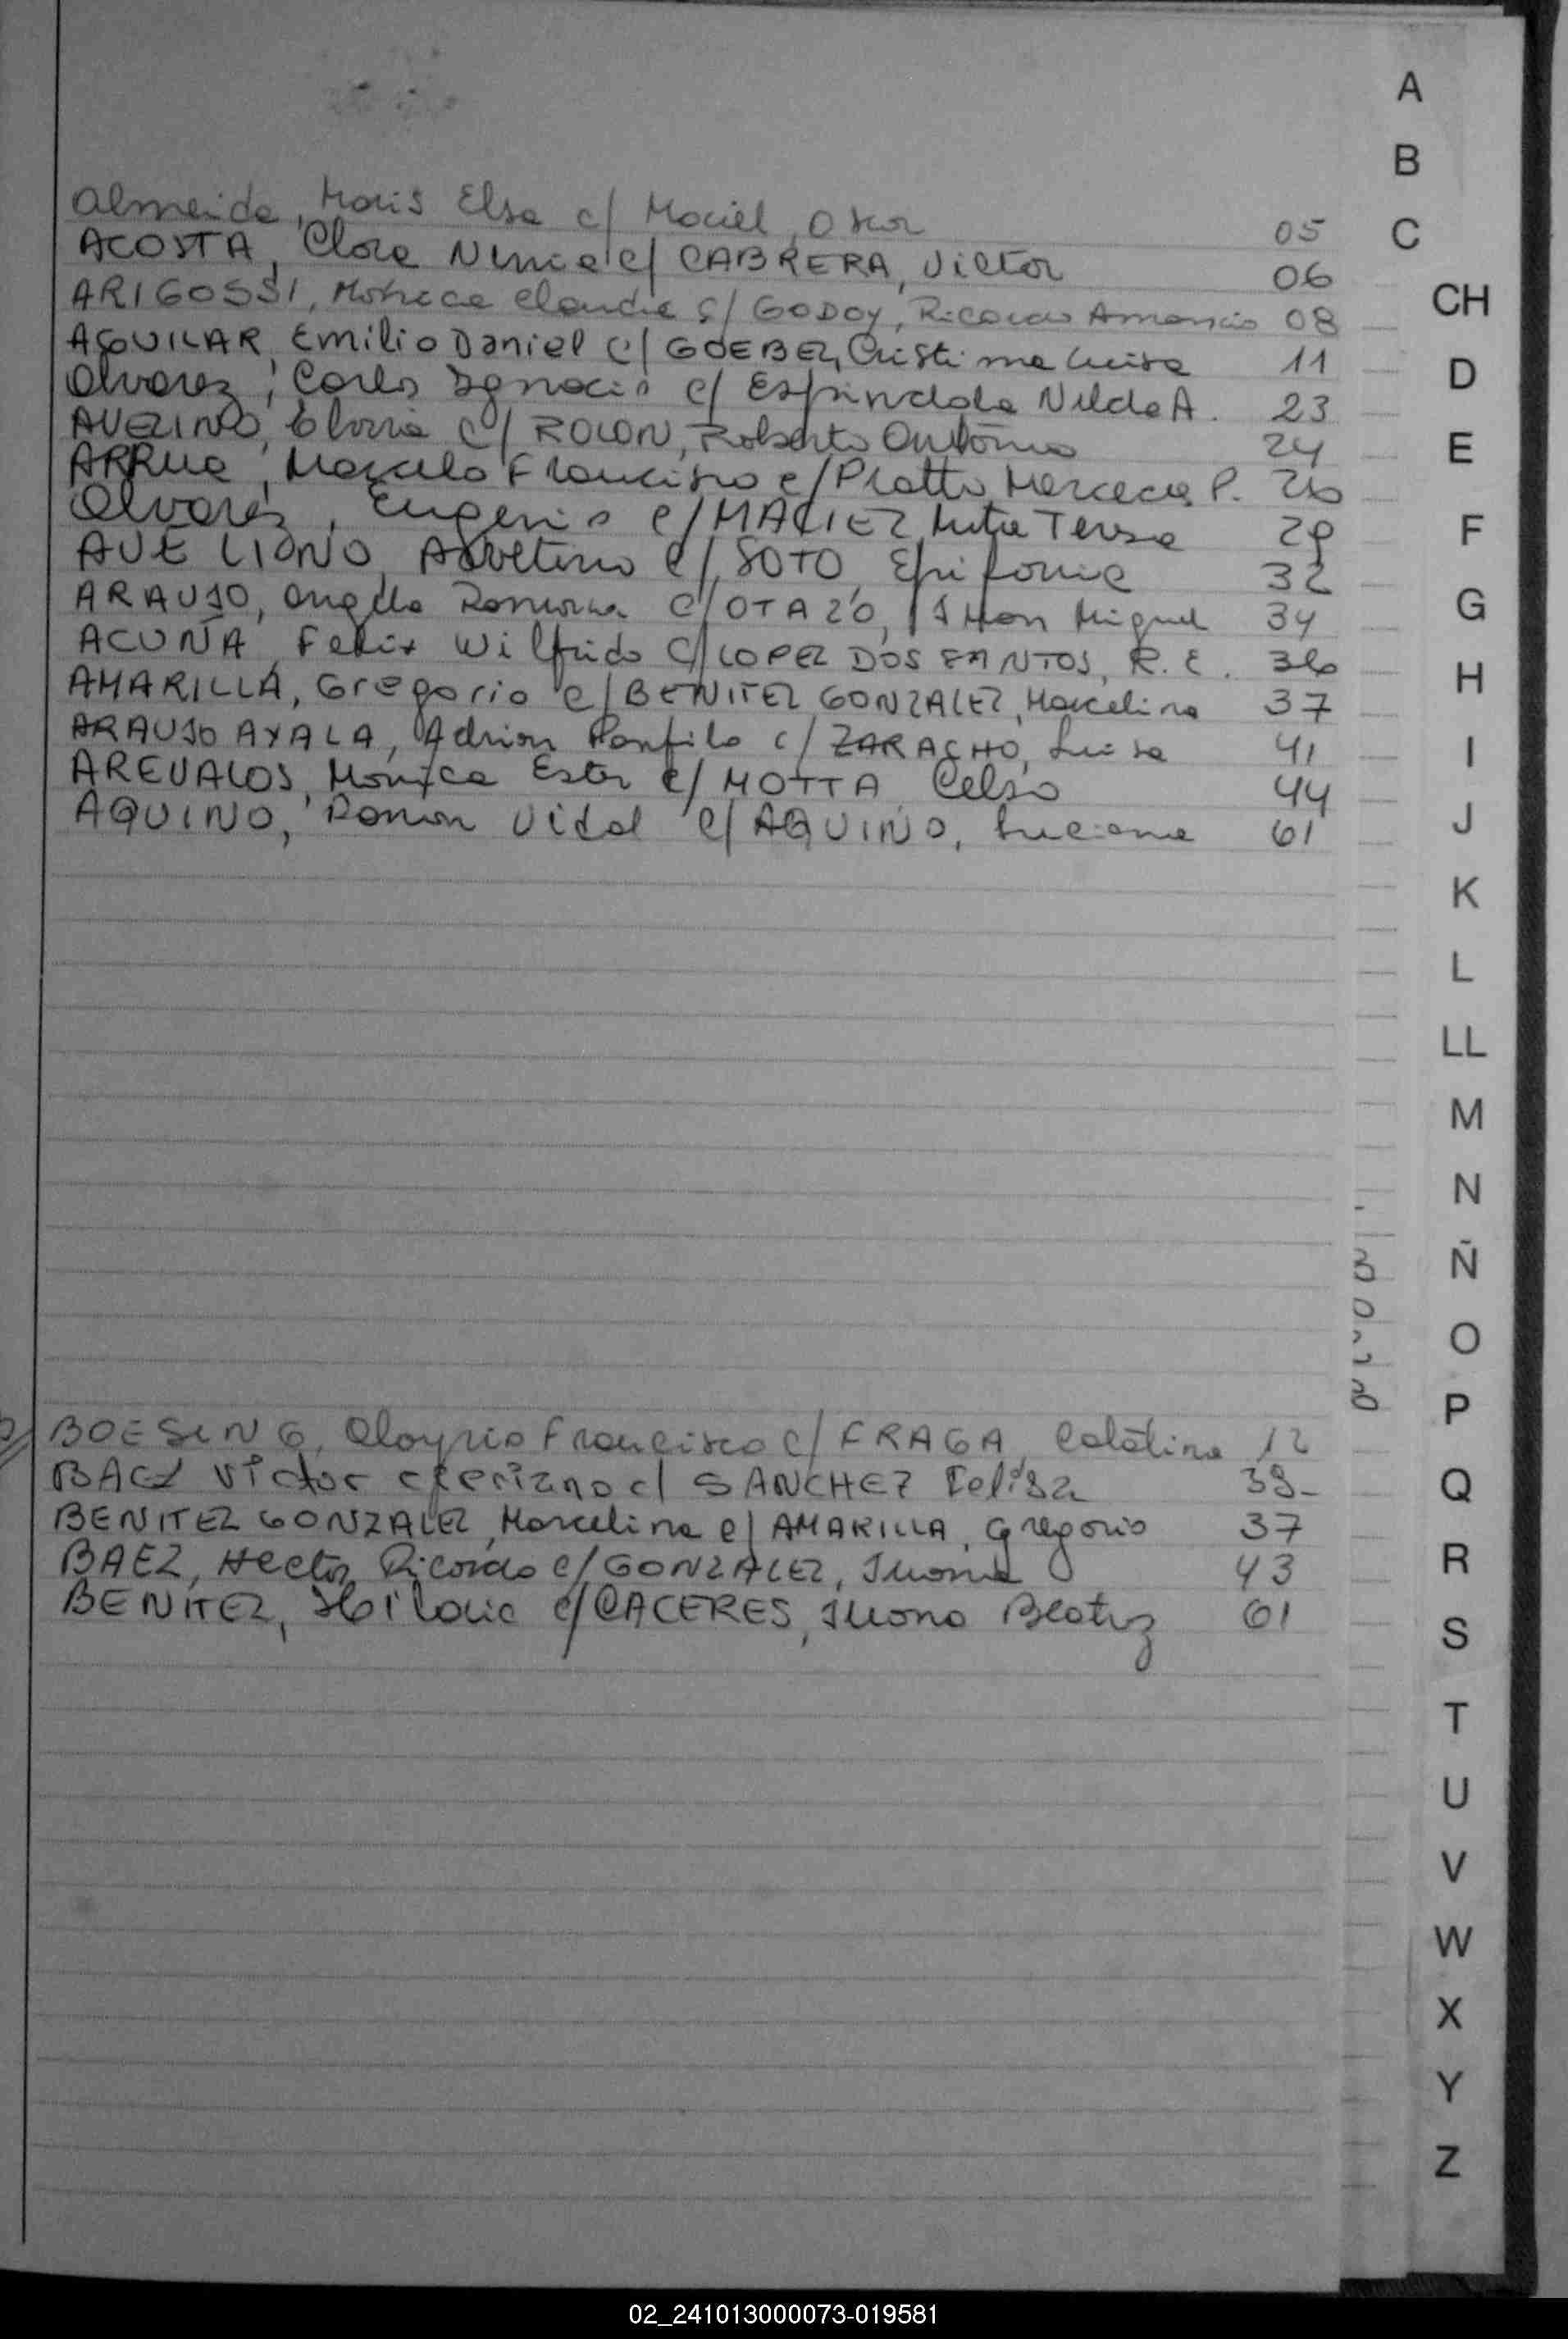 A
B
C
CH
D
E
F
G
H
I
J
K
L
LL
M
N
Ñ
O
P
Q
R
S
T
U
V
W
X
Y
Z
Almeida, Maris Elsa c/ Maciel, Oscar 05
ACOSTA, Clara c/ CABRERA, Victor 06
ARIGOSSI, Monica Claudia c/ GODOY, Ricardo Amancio 08
AGUILAR, Emilio Daniel c/ GOEBEL, Cristina Luisa 11
Alvarez, Carlos Ignacio c/ Espindola Nilda A. 23
AVELINO, Gloria c/ ROLON, Roberto Antonio 24
ARRUA, Marcelo Francisco c/ Pratto, Mercedes P. 26
Alvarez, Eugenio c/ MACIEL, Teresa 29
AVELIONO, c/ SOTO, Epifania 32
ARAUJO, Angela Ramona c/ OTAZO, Juan Miguel 34
ACUÑA, Felix Wilfrido c/ LOPEZ DOS SANTOS, R. E. 36
AMARILLA, Gregorio c/ BENITEZ GONZALEZ, Marcelina 37
ARAUJO AYALA, Adrian Panfilo c/ ZARACHO, Luisa 41
AREVALOS, Monica Ester c/ MOTTA, Celso 44
AQUINO, Ramon Vidal c/ AQUINO, Luciana 61
BOESING, Aloysio Francisco c/ FRAGA, Catalina 12
BAEZ Victor c/ SANCHEZ Felisa 39-
BENITEZ GONZALEZ, Marcelina c/ AMARILLA, Gregorio 37
BAEZ, Hector Ricardo c/ GONZALEZ, Juana 43
BENITEZ, Hilario c/ CACERES, Juana Beatriz 61
02_241013000073-019581